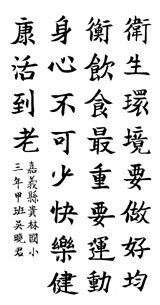 衛生環境要做好均
衡飲食最重要運動
身心不可少快樂健
康活到老
嘉義縣貴林國小
三年甲班吳曉君